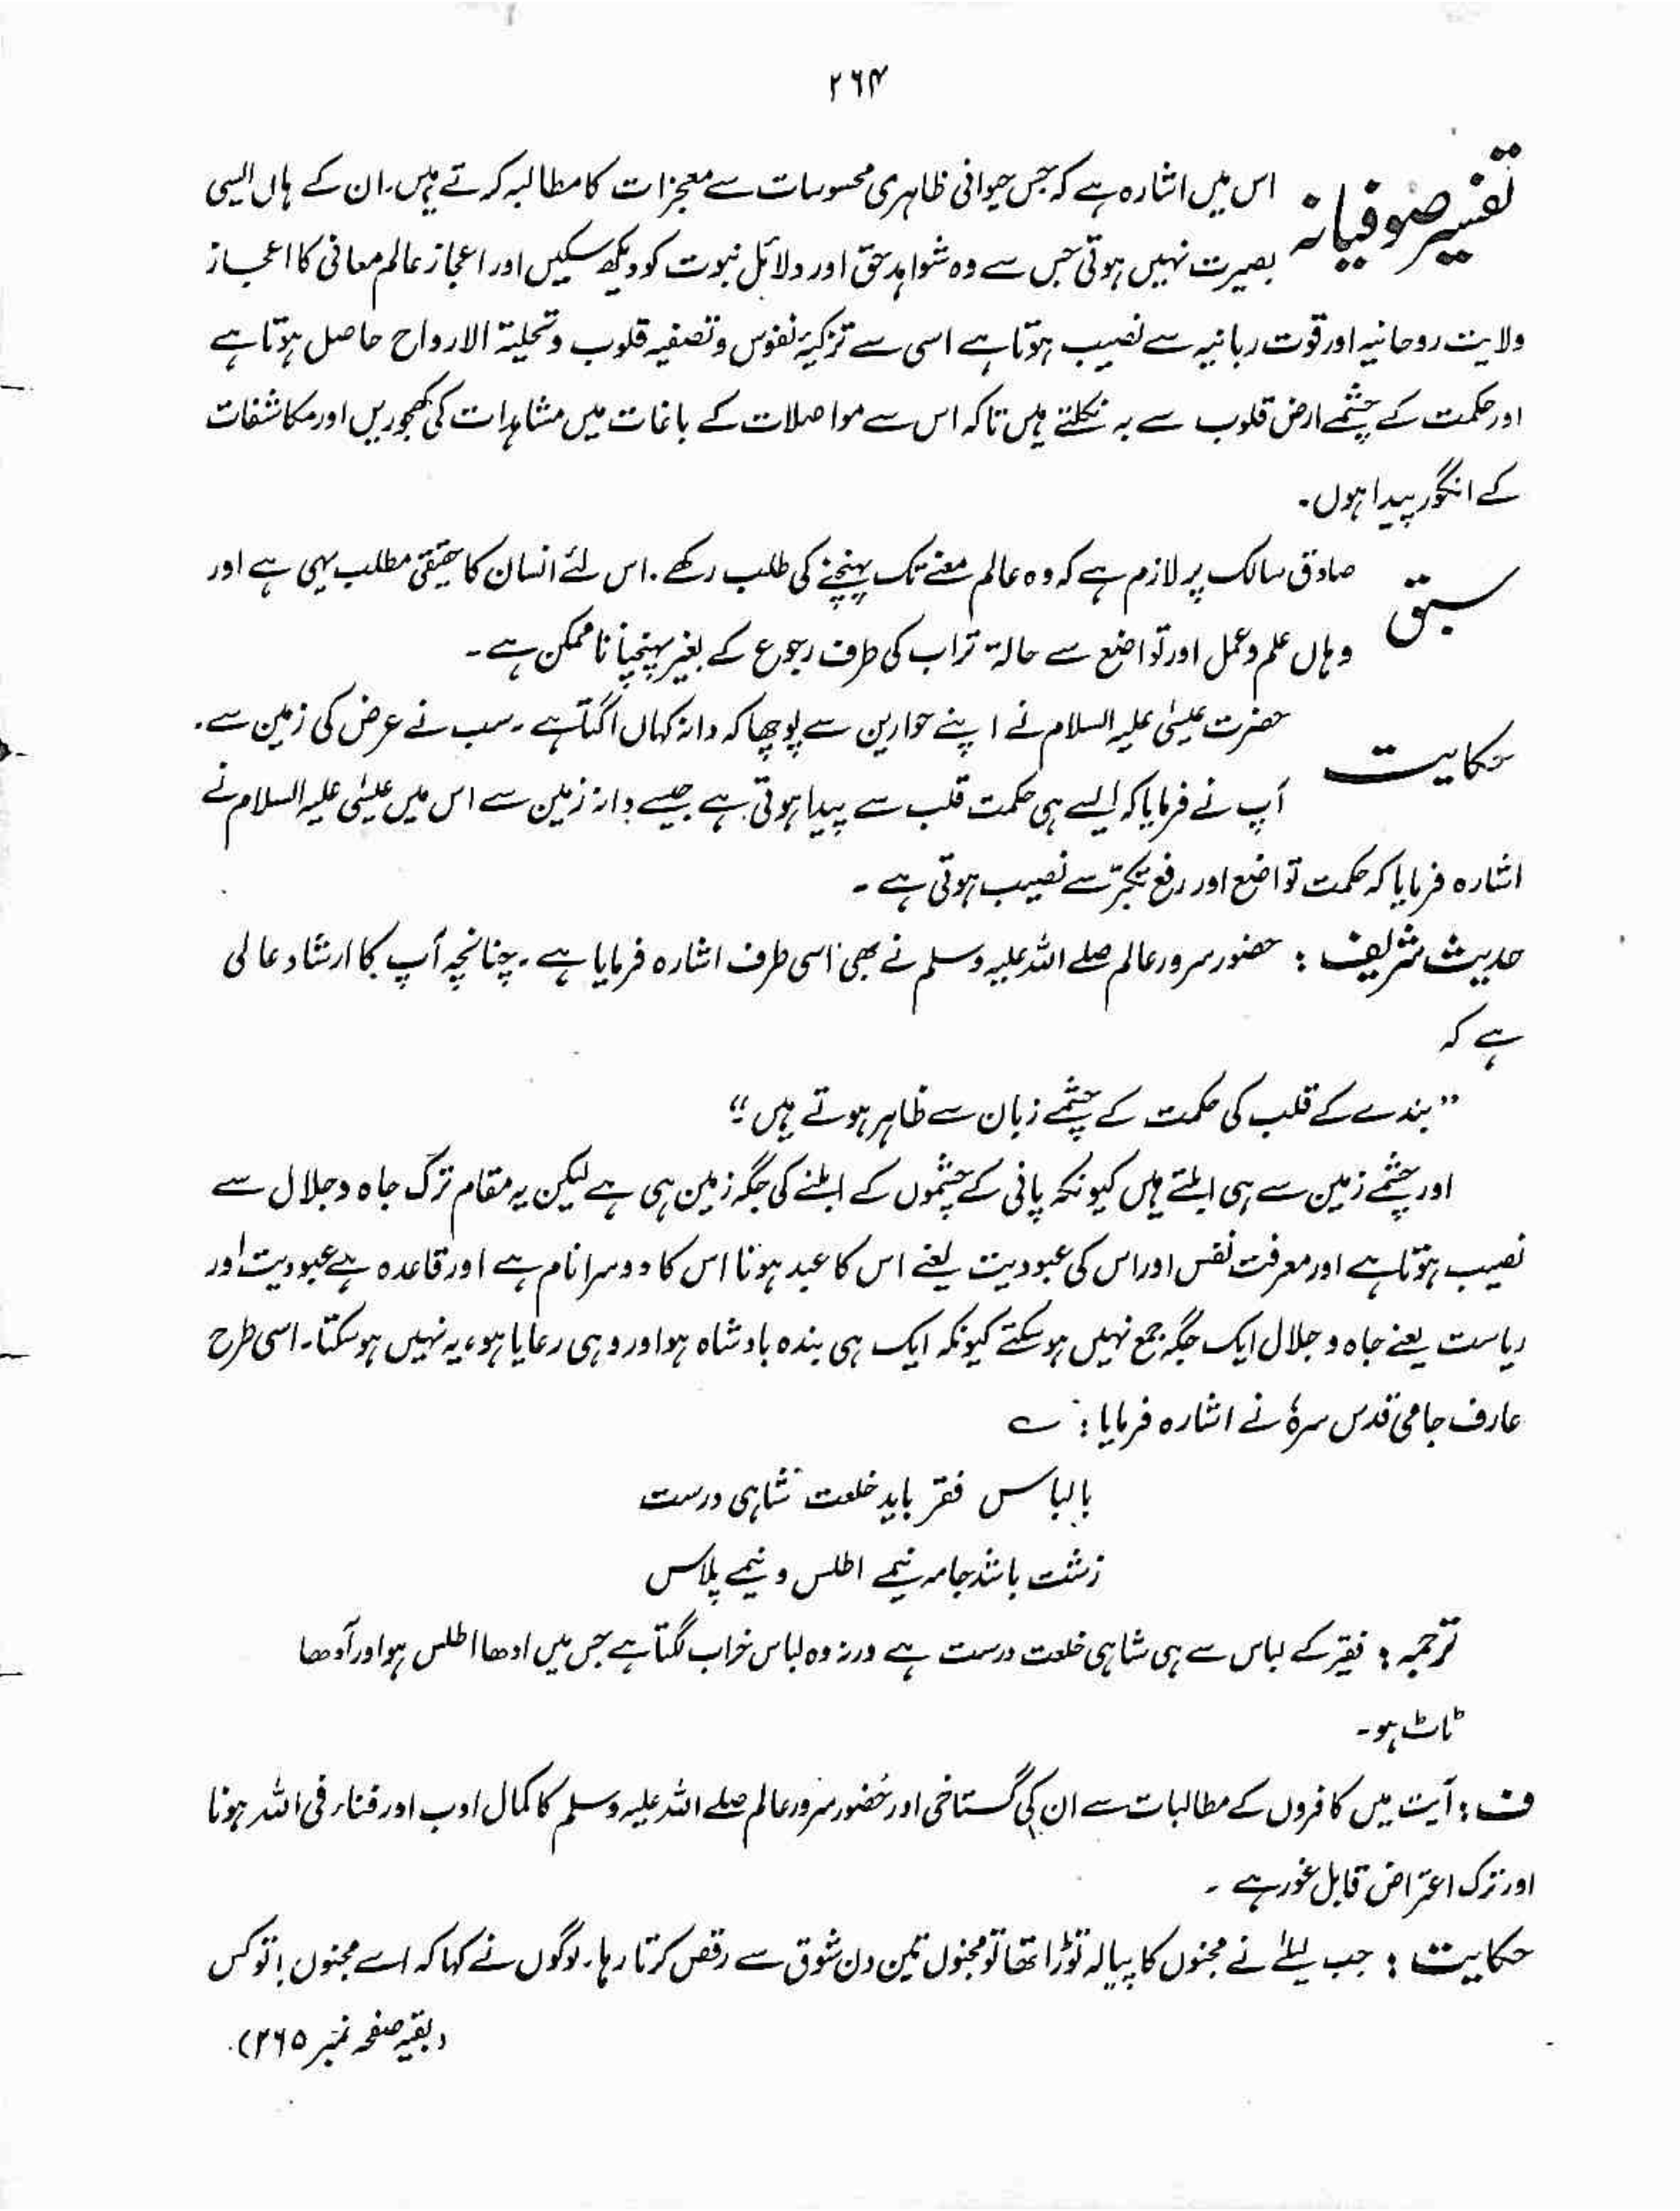 ۲۶۴
تفسیر صوفیانہ
اس میں اشارہ ہے کہ جس حیوانی ظاہری محسوسات سے معجزات کا مطالبہ کرتے ہیں۔ ان کے ہاں ایسی
بصیرت نہیں ہوتی جس سے وہ شواہد حق اور دلائل نبوت کو دیکھ سکیں اور اعجاز عالم معانی کا اعجاز
ولایت روحانیہ اور قوت ربانیہ سے نصیب ہوتا ہے اسی سے تزکیۂ نفوس و تصفیہ قلوب و تحلیۃ الارواح حاصل ہوتا ہے
اور حکمت کے چشمے ارض قلوب سے بہ نکلتے ہیں تاکہ اس سے مواصلات کے باغات میں مشاہدات کی کھجوریں اور مکاشفات
کے انگور پیدا ہوں۔
سبق
صادق سالک پر لازم ہے کہ وہ عالم معنے تک پہنچنے کی طلب رکھے۔ اس لئے انسان کا حقیقی مطلب یہی ہے اور
وہاں علم و عمل اور تواضع سے حالۃ تراب کی طرف رجوع کے بغیر پہنچنا ناممکن ہے۔
حکایت
حضرت عیسیٰ علیہ السلام نے اپنے حوارین سے پوچھا کہ دانہ کہاں اگتا ہے۔ سب نے عرض کی زمین سے۔
آپ نے فرمایا کہ ایسے ہی حکمت قلب سے پیدا ہوتی ہے جیسے دانہ زمین سے اس میں عیسٰی علیہ السلام نے
اشارہ فرمایا کہ حکمت تواضع اور رفع تکبّر سے نصیب ہوتی ہے۔
حدیث شریف : حضور سرور عالم صلے اللہ علیہ وسلم نے بھی اسی طرف اشارہ فرمایا ہے۔ چنانچہ آپ کا ارشاد عالی
ہے کہ
”بندے کے قلب کی حکمت کے چشمے زبان سے ظاہر ہوتے ہیں“
اور چشمے زمین سے ہی ابلتے ہیں کیونکہ پانی کے چشموں کے ابلنے کی جگہ زمین ہی ہے لیکن یہ مقام ترک جاہ و جلال سے
نصیب ہوتا ہے اور معرفت نفس اور اس کی عبودیت یعنے اس کا عبد ہونا اس کا دوسرا نام ہے اور قاعدہ ہے عبودیت اور
ریاست یعنے جاہ و جلال ایک جگہ جمع نہیں ہو سکتے کیونکہ ایک ہی بندہ بادشاہ ہو اور وہی رعایا ہو، یہ نہیں ہو سکتا۔ اسی طرح
عارف جامی قدس سرہٗ نے اشارہ فرمایا : ؎
با لباس فقر باید خلعت شاہی درست
زشت باشد جامہ نیمے اطلس و نیمے پلاس
ترجمہ : فقیر کے لباس سے ہی شاہی خلعت درست ہے ورنہ وہ لباس خراب لگتا ہے جس میں ادھا اطلس ہو اور آدھا
ٹاٹ ہو۔
ف : آیت میں کافروں کے مطالبات سے ان کی گستاخی اور حُضور سرور عالم صلے اللہ علیہ وسلم کا کمال ادب اور فناء فی اللہ ہونا
اور ترک اعتراض قابل غور ہے۔
حکایت : جب لیلےٰ نے مجنوں کا پیالہ توڑا تھا تو مجنوں تین دن شوق سے رقص کرتا رہا۔ لوگوں نے کہا کہ اے مجنوں! تو کس
(بقیہ صفحہ نمبر ۲۶۵)